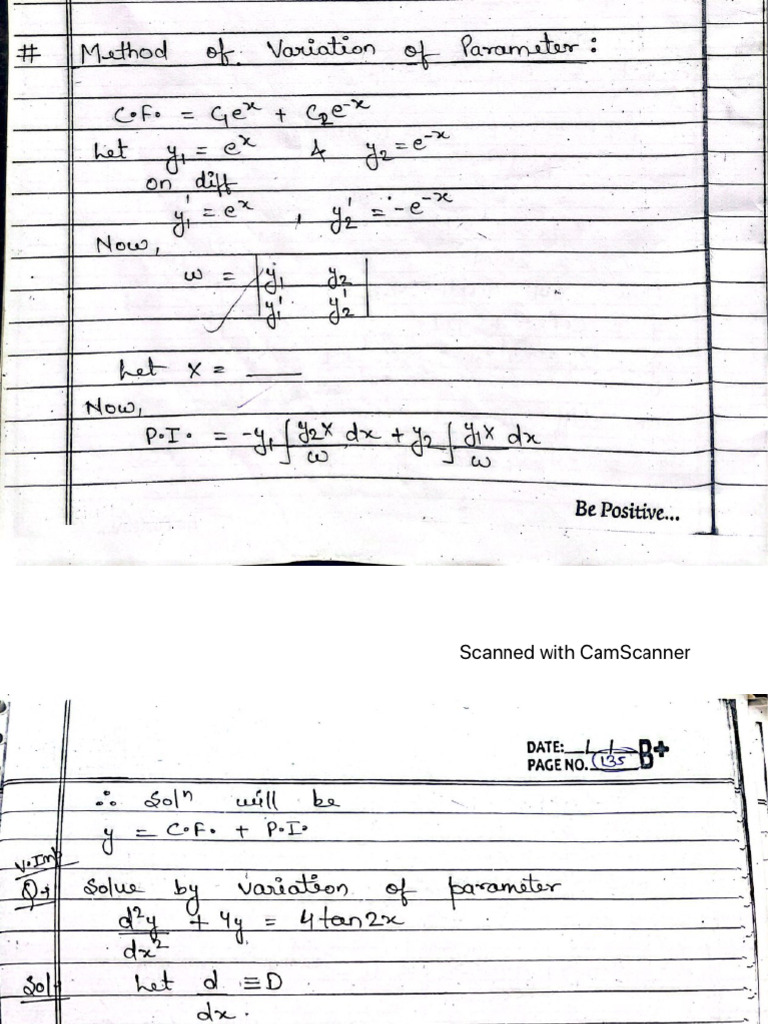 # Method of Variation of Parameter :
C.F. = C₁eˣ + C₂e⁻ˣ
Let y₁ = eˣ & y₂ = e⁻ˣ
on diff
y₁' = eˣ , y₂' = -e⁻ˣ
Now,
w = | y₁ y₂ |
| y₁' y₂' |
Let X = ___
Now,
P.I. = -y₁ ∫ y₂X/w dx + y₂ ∫ y₁X/w dx
Be Positive...
Scanned with CamScanner
DATE: / / B+
PAGE NO. 135
∴ Solⁿ will be
y = C.F. + P.I.
V.Imp
Q→ Solve by variation of parameter
d²y/dx² + 4y = 4tan2x
Sol Let d/dx ≡ D